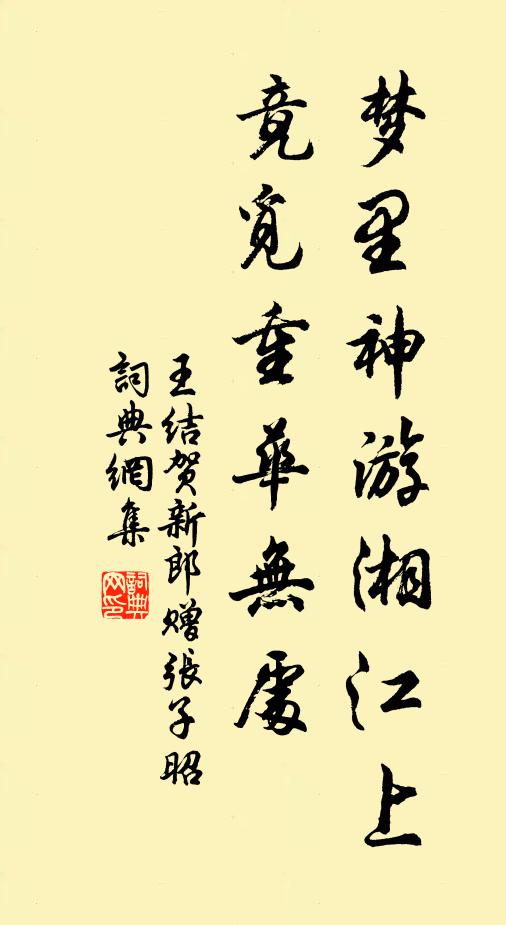 梦里神游湘江上
竟觅重华無處
王结贺新郎赠張子昭
詞典網集
詞典网印